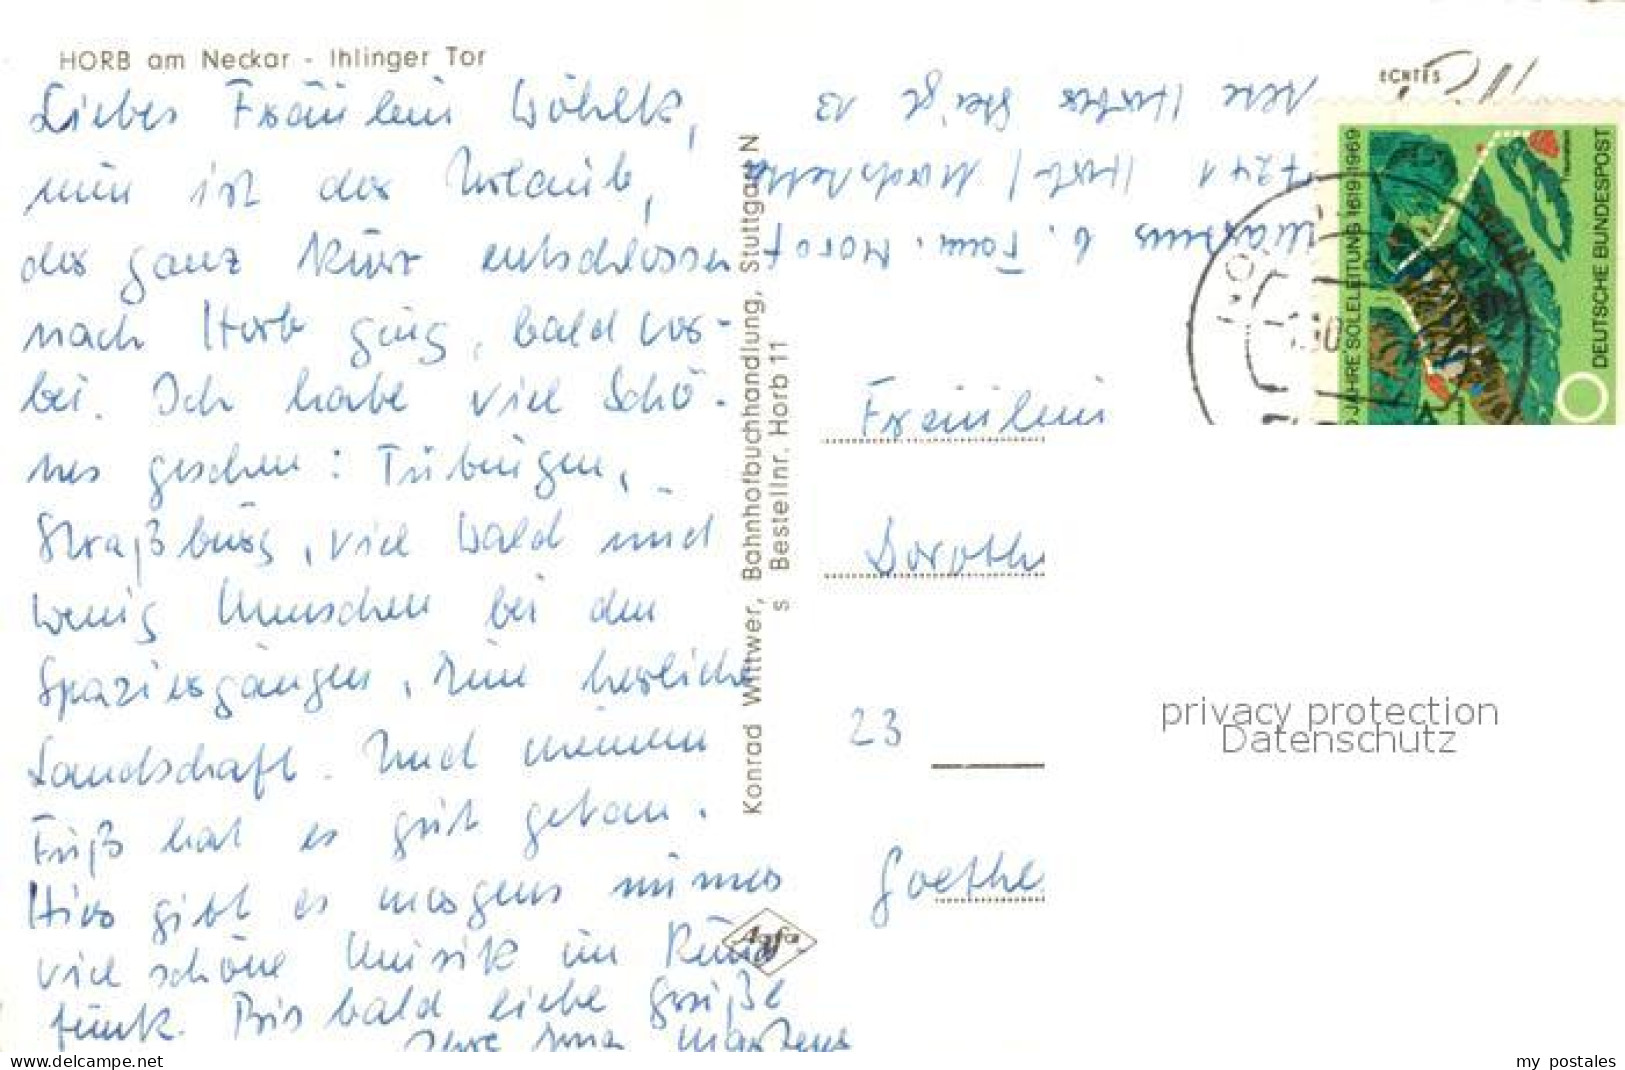 HORB am Neckar - Ihlinger Tor
Liebes Fräulein Wöhlk,
nun ist der Urlaub,
der ganz kurz entschlossen
nach Horb ging, bald vor-
bei. Ich habe viel Schö-
nes gesehen: Tübingen,
Straßburg, viel Wald und
wenig Menschen bei den
Spaziergängen, eine herrliche
Landschaft. Und meinem
Fuß hat es gut getan.
Hier gibt es morgens immer
viel schöne Musik im Rund
funk. Bis bald liebe Grüße
Ihre Martens
Konrad Wittwer, Bahnhofbuchhandlung, Stuttgart N
S Bestellnr. Horb 11
Agfa
ECHTES
Martens b. Fam. Morof
7241 Horb / Nordstetten
Alte Horber Steige 13
JAHRE SOLELEITUNG 1619-1969
DEUTSCHE BUNDESPOST
Fräulein
Doroth
23
Goethe
privacy protection
Datenschutz
delcampe.net
my_postales